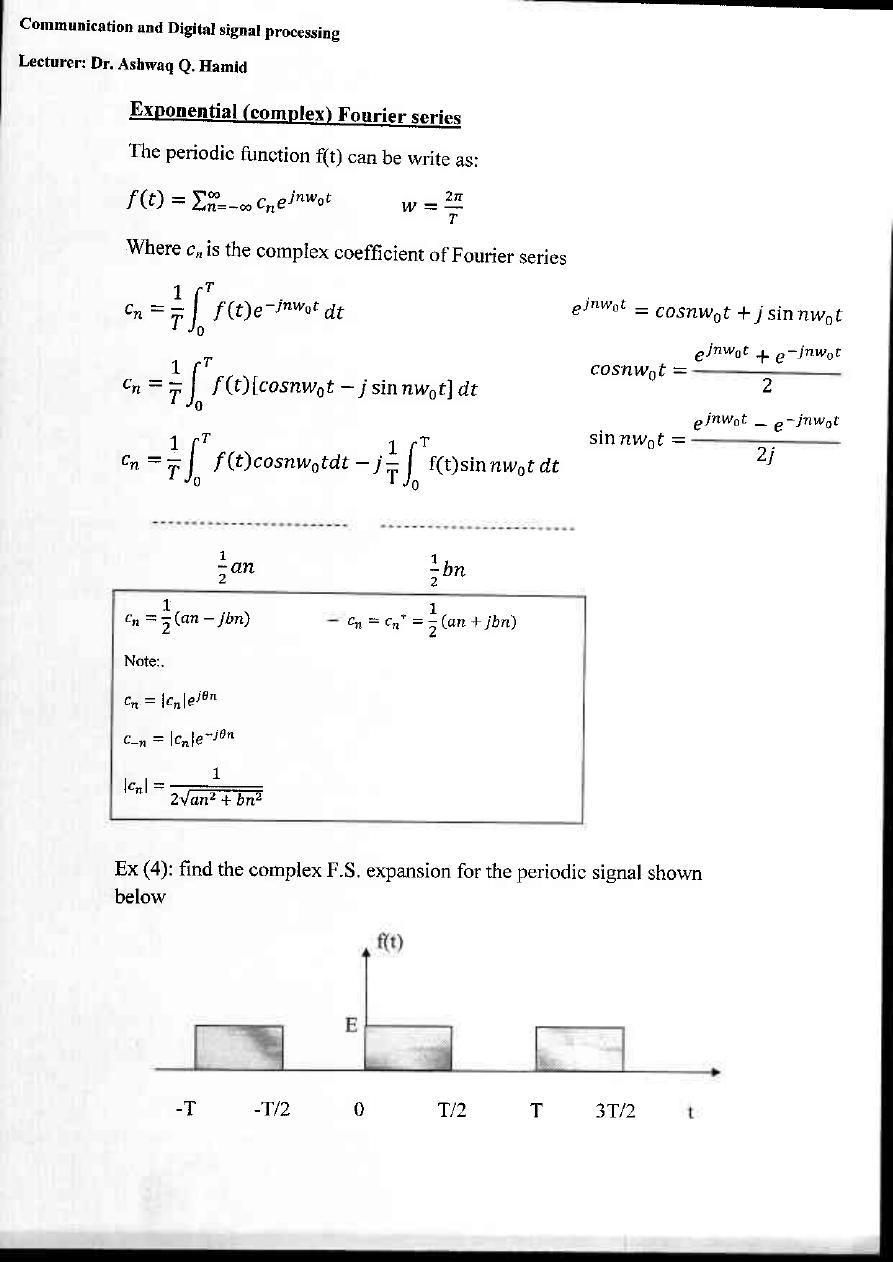 Communication and Digital signal processing
Lecturer: Dr. Ashwaq Q. Hamid
Exponential (complex) Fourier series
The periodic function f(t) can be write as:
f(t) = ∑_{n=-∞}^{∞} c_n e^{jnw_0t}    w = 2π/T
Where c_n is the complex coefficient of Fourier series
c_n = 1/T ∫_0^T f(t)e^{-jnw_0t} dt    e^{jnw_0t} = cosnw_0t + j sin nw_0t
c_n = 1/T ∫_0^T f(t)[cosnw_0t − j sin nw_0t] dt    cosnw_0t = (e^{jnw_0t} + e^{-jnw_0t})/2
c_n = 1/T ∫_0^T f(t)cosnw_0tdt − j 1/T ∫_0^T f(t)sin nw_0t dt    sin nw_0t = (e^{jnw_0t} − e^{-jnw_0t})/2j
1/2 an    1/2 bn
c_n = 1/2 (an − jbn)    − c_n = c_n^* = 1/2 (an + jbn)
Note:.
c_n = |c_n|e^{jθn}
c_{-n} = |c_n|e^{-jθn}
|c_n| = 1/(2√an² + bn²)
Ex (4): find the complex F.S. expansion for the periodic signal shown
below
f(t)
E
-T    -T/2    0    T/2    T    3T/2    t